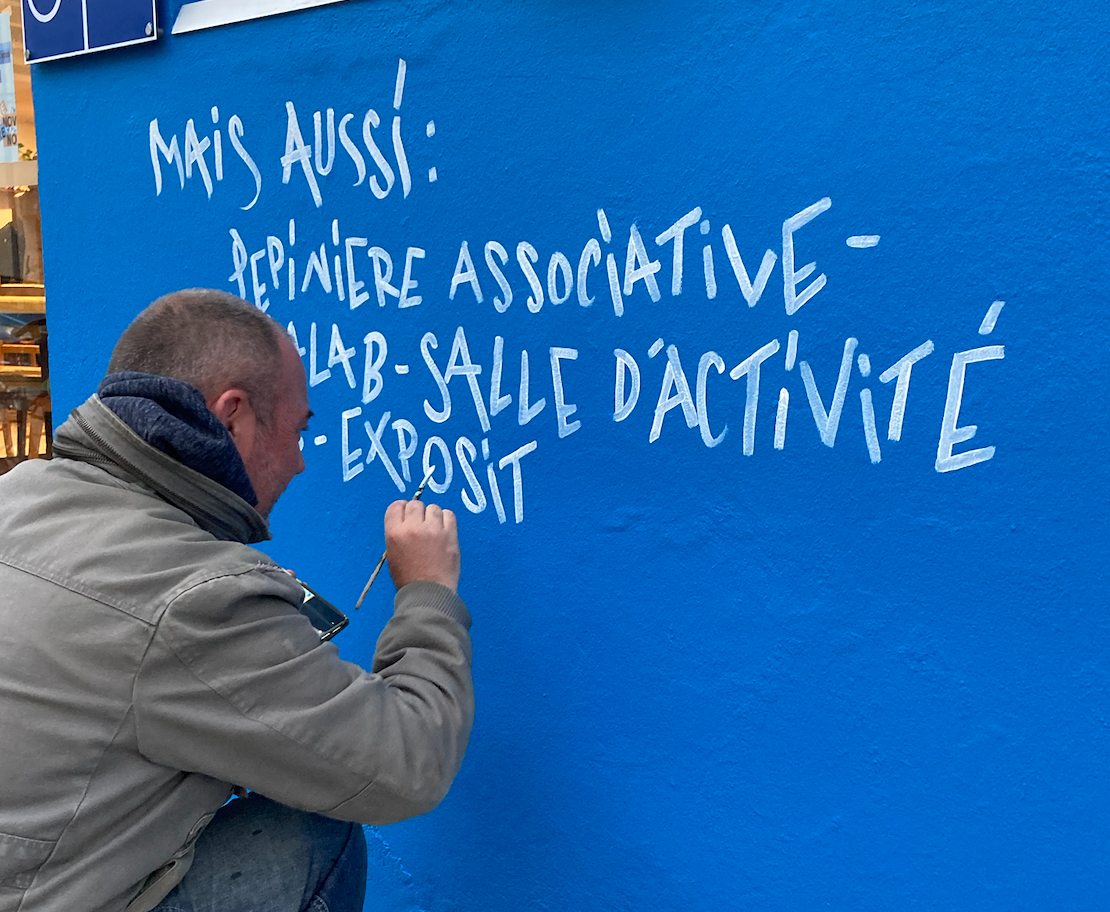 MAiS AUSSi :
PEPiNiERE ASSOCiATiVE -
- SALLE D'ACTiViTÉ
- EXPOSiT